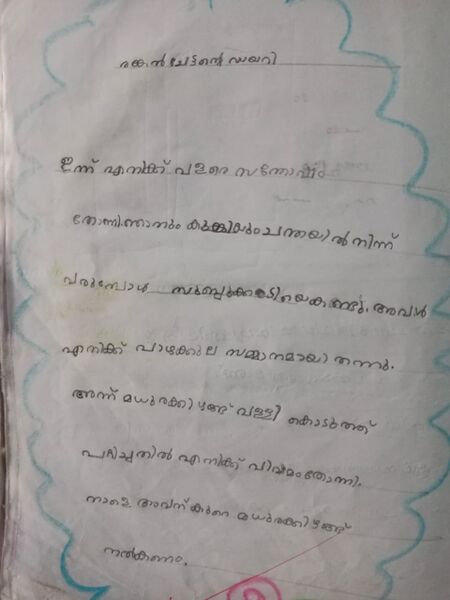 രങ്കൻ ചേട്ടന്റെ ഡയറി
ഇന്ന് എനിക്ക് വളരെ സന്തോഷം
തോന്നി.ഞാനും കുക്കിയും ചന്തയിൽ നിന്ന്
വരുമ്പോൾ സുബ്ബുക്കരടിയെ കണ്ടു. അവൻ
എനിക്ക് പാഴക്കുല സമ്മാനമായി തന്നു.
അന്ന് മധുരക്കിഴങ്ങ് വള്ളി കൊടുത്ത്
പറ്റിച്ചതിൽ എനിക്ക് വിഷമം തോന്നി.
നാളെ അവന് കുറെ മധുരക്കിഴങ്ങ്
നൽകണം.